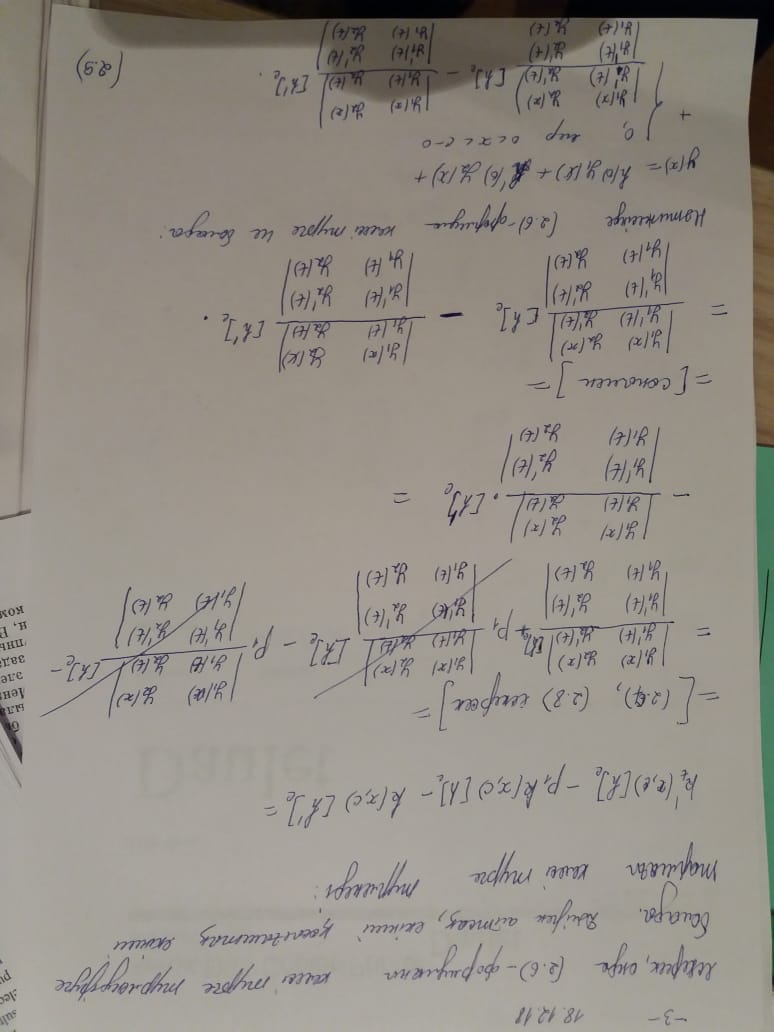 -3- 18.12.18
ескерек, онда (2.6)-формуланы келесі түрге түрлендіруге
болады. Дәлірек айтсақ, екінші қосылғыштың екінші
тармағы келесі түрге түрленеді:
k't(x,c)[h]c - p₁k(x,c)[h]c - k(x,c)[h']c =
= [(2.7), (2.8) ескерсек] =
= |y₁(x) y₂(x)| |y₁(x) y₂(x)| |y₁(x) y₂(x)|
|y₁'(t) y₂'(t)| [h]c + p₁ |y₁(t) y₂(t)| [h]c - p₁ |y₁(t) y₂(t)| [h]c -
|y₁'(t) y₂'(t)| |y₁'(t) y₂'(t)| |y₁'(t) y₂'(t)|
|y₁(t) y₂(t)| |y₁(t) y₂(t)| |y₁(t) y₂(t)|
|y₁(x) y₂(x)|
- |y₁(t) y₂(t)| · [h']c =
|y₁'(t) y₂'(t)|
|y₁(t) y₂(t)|
= [сонымен] =
|y₁(x) y₂(x)| |y₁(x) y₂(x)|
= |y₁'(t) y₂'(t)| [h]c - |y₁(t) y₂(t)| [h']c.
|y₁'(t) y₂'(t)| |y₁'(t) y₂'(t)|
|y₁(t) y₂(t)| |y₁(t) y₂(t)|
Нәтижесінде (2.6)-формула келесі түрге ие болады:
y(x) = h(0)y₁(x) + h'(0)y₂(x) +
+ { 0, егер 0<x<c-0
|y₁(x) y₂(x)| |y₁(x) y₂(x)|
|y₁'(t) y₂'(t)| [h]c - |y₁(t) y₂(t)| [h']c. (2.9)
|y₁'(t) y₂'(t)| |y₁'(t) y₂'(t)|
|y₁(t) y₂(t)| |y₁(t) y₂(t)|
Daulet